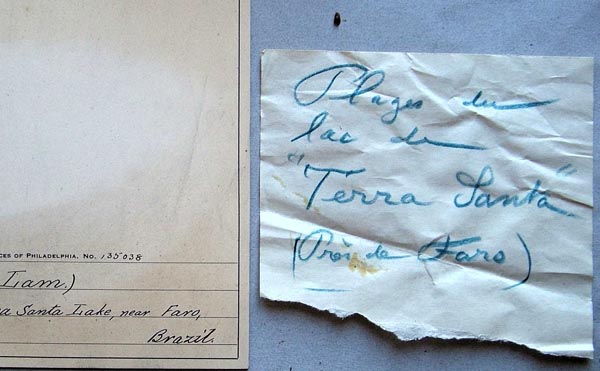 CES OF PHILADELPHIA. No. 135038
Lam.)
a Santa Lake, near Faro,
Brazil.
Plages du
lac de
"Terra Santa"
(Près de Faro)